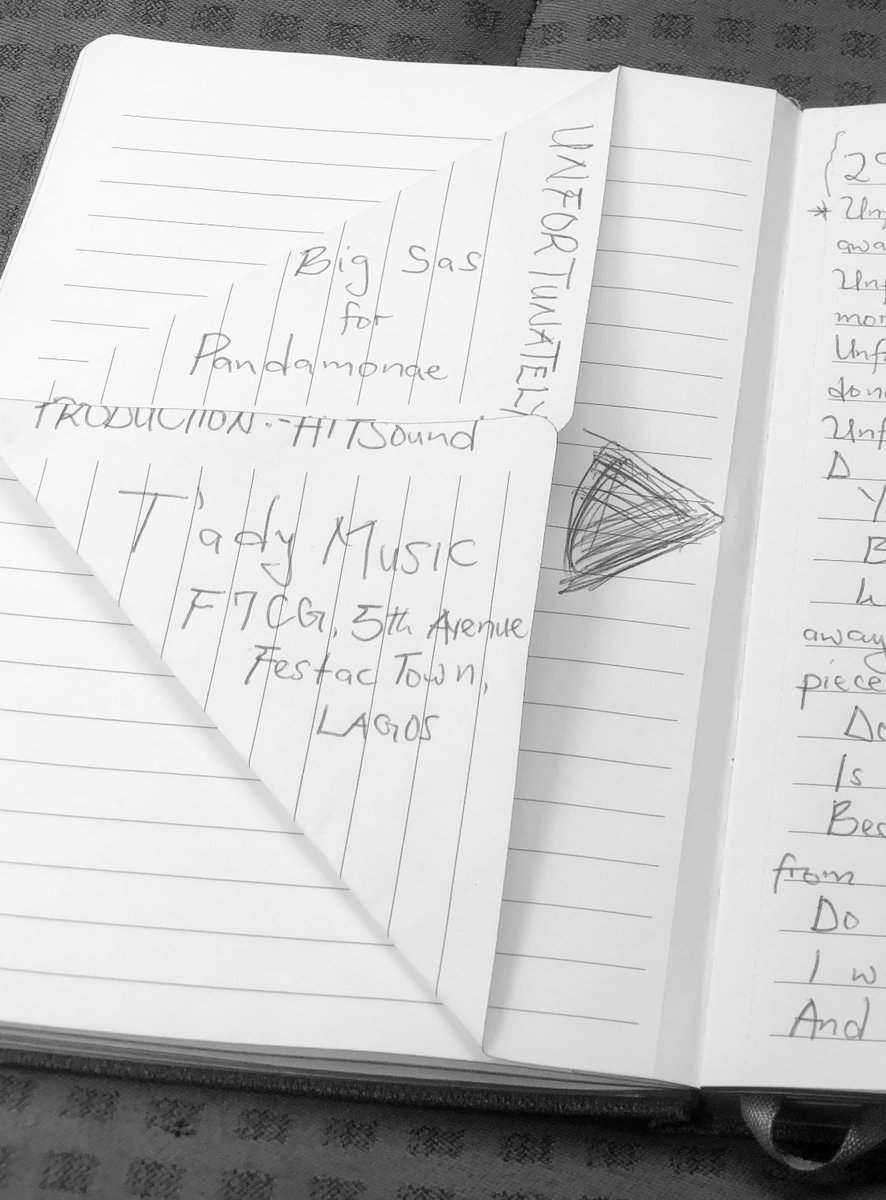 UNFORTUNATELY
Big Sas
for
Pandamonae
PRODUCTION:- HITSound
T'ady Music
F7CG, 5th Avenue
Festac Town,
LAGOS
{29
* Unf
awa
Unf
mor
Unf
don
Unf
D
Y
B
away
piece
Do
Is
Bec
from
Do
I w
And